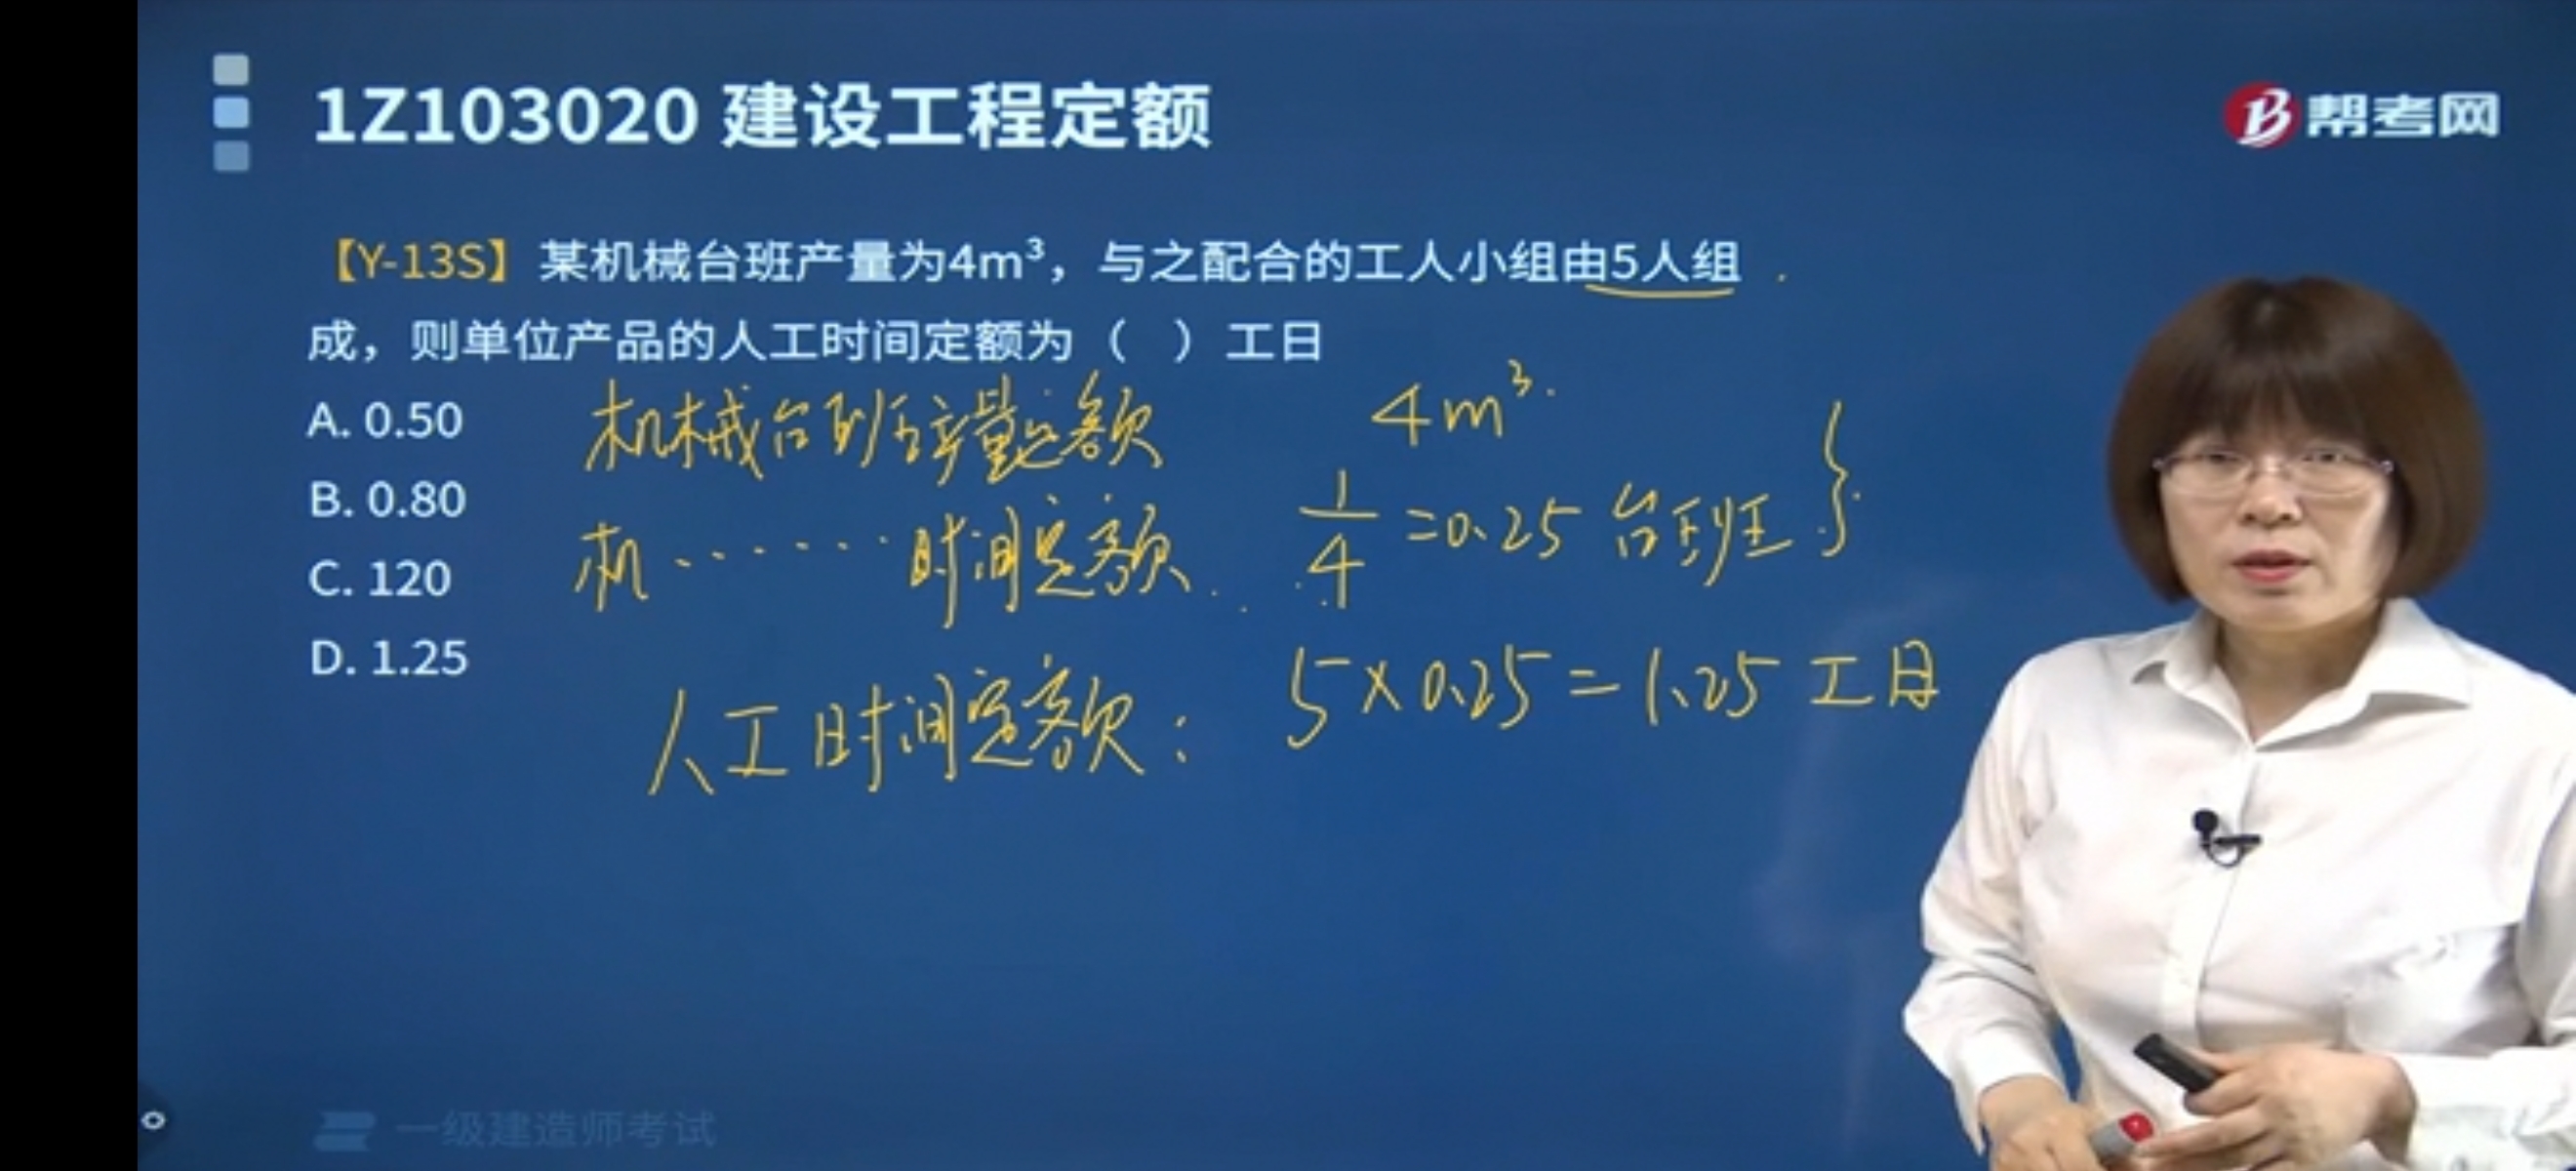 1Z103020 建设工程定额
帮考网
【Y-13S】某机械台班产量为4m³，与之配合的工人小组由5人组
成，则单位产品的人工时间定额为（ ）工日
A. 0.50
B. 0.80
C. 120
D. 1.25
机械台班产量定额 4m³
机……时间定额 1/4=0.25 台班
人工时间定额： 5×0.25=1.25 工日
一级建造师考试